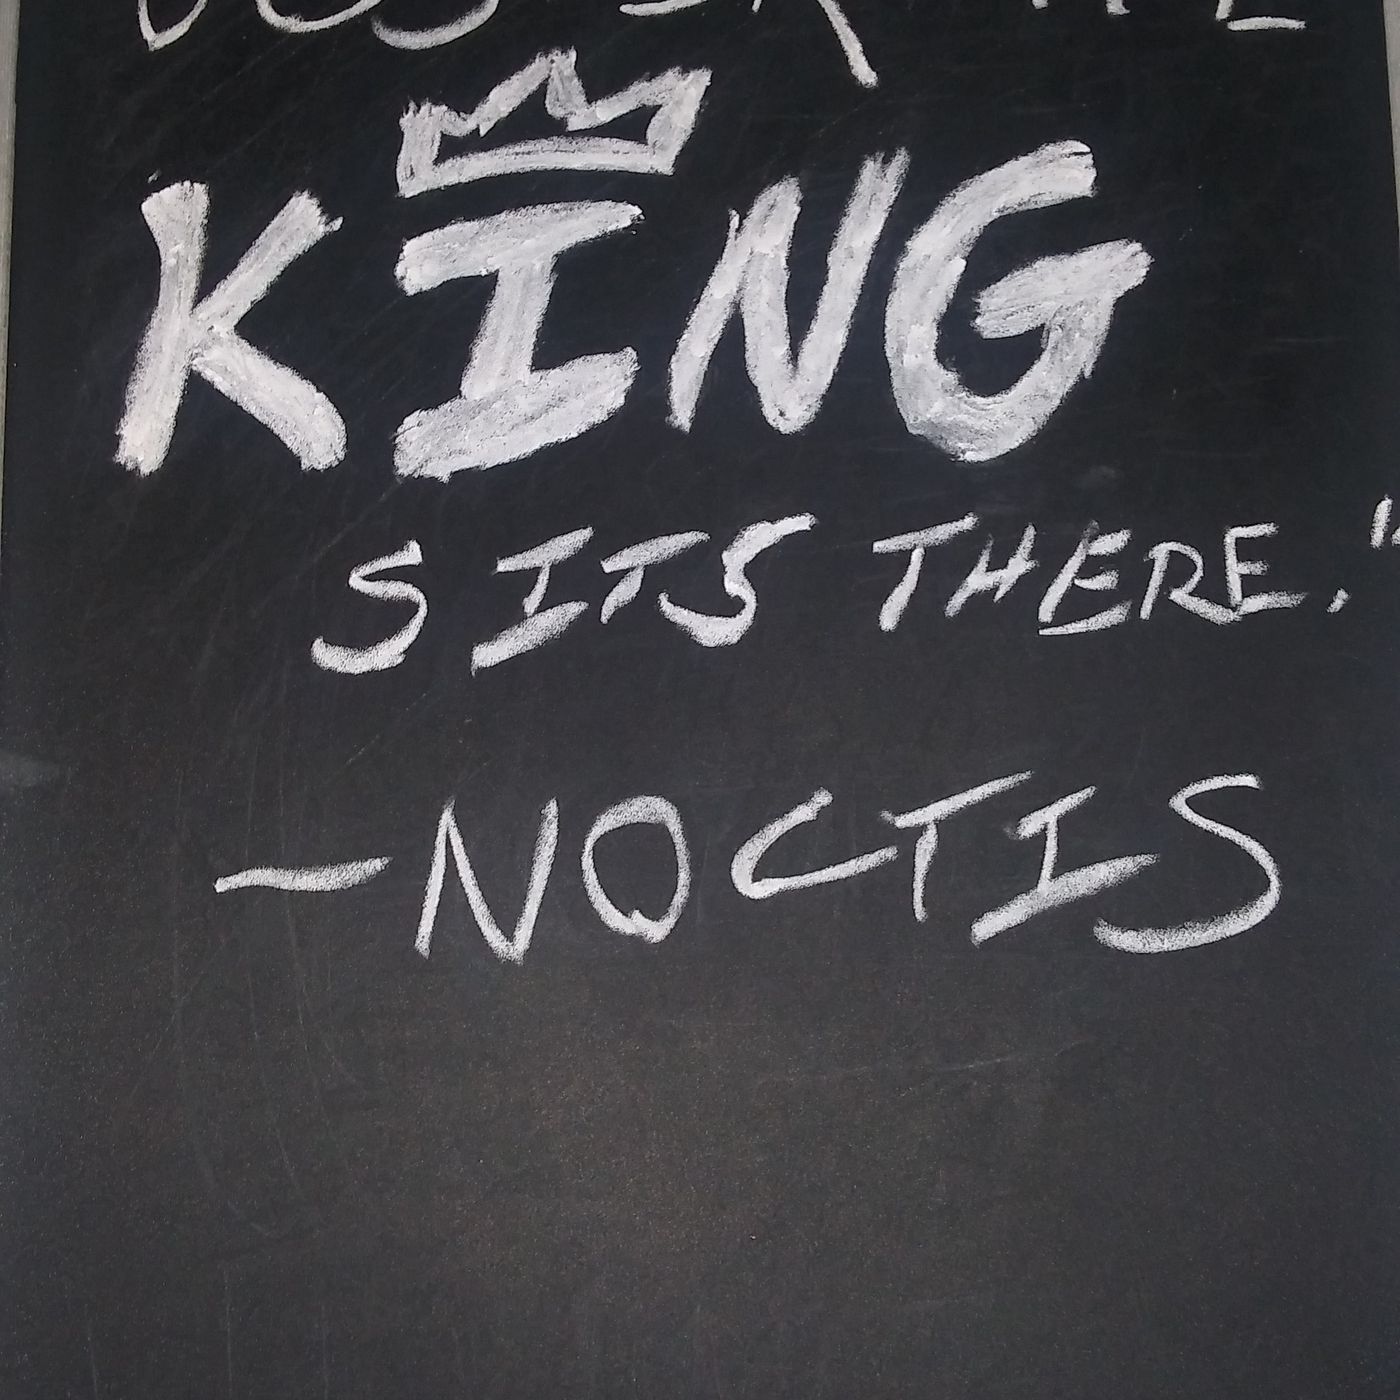 KING
SITS THERE."
—NOCTIS